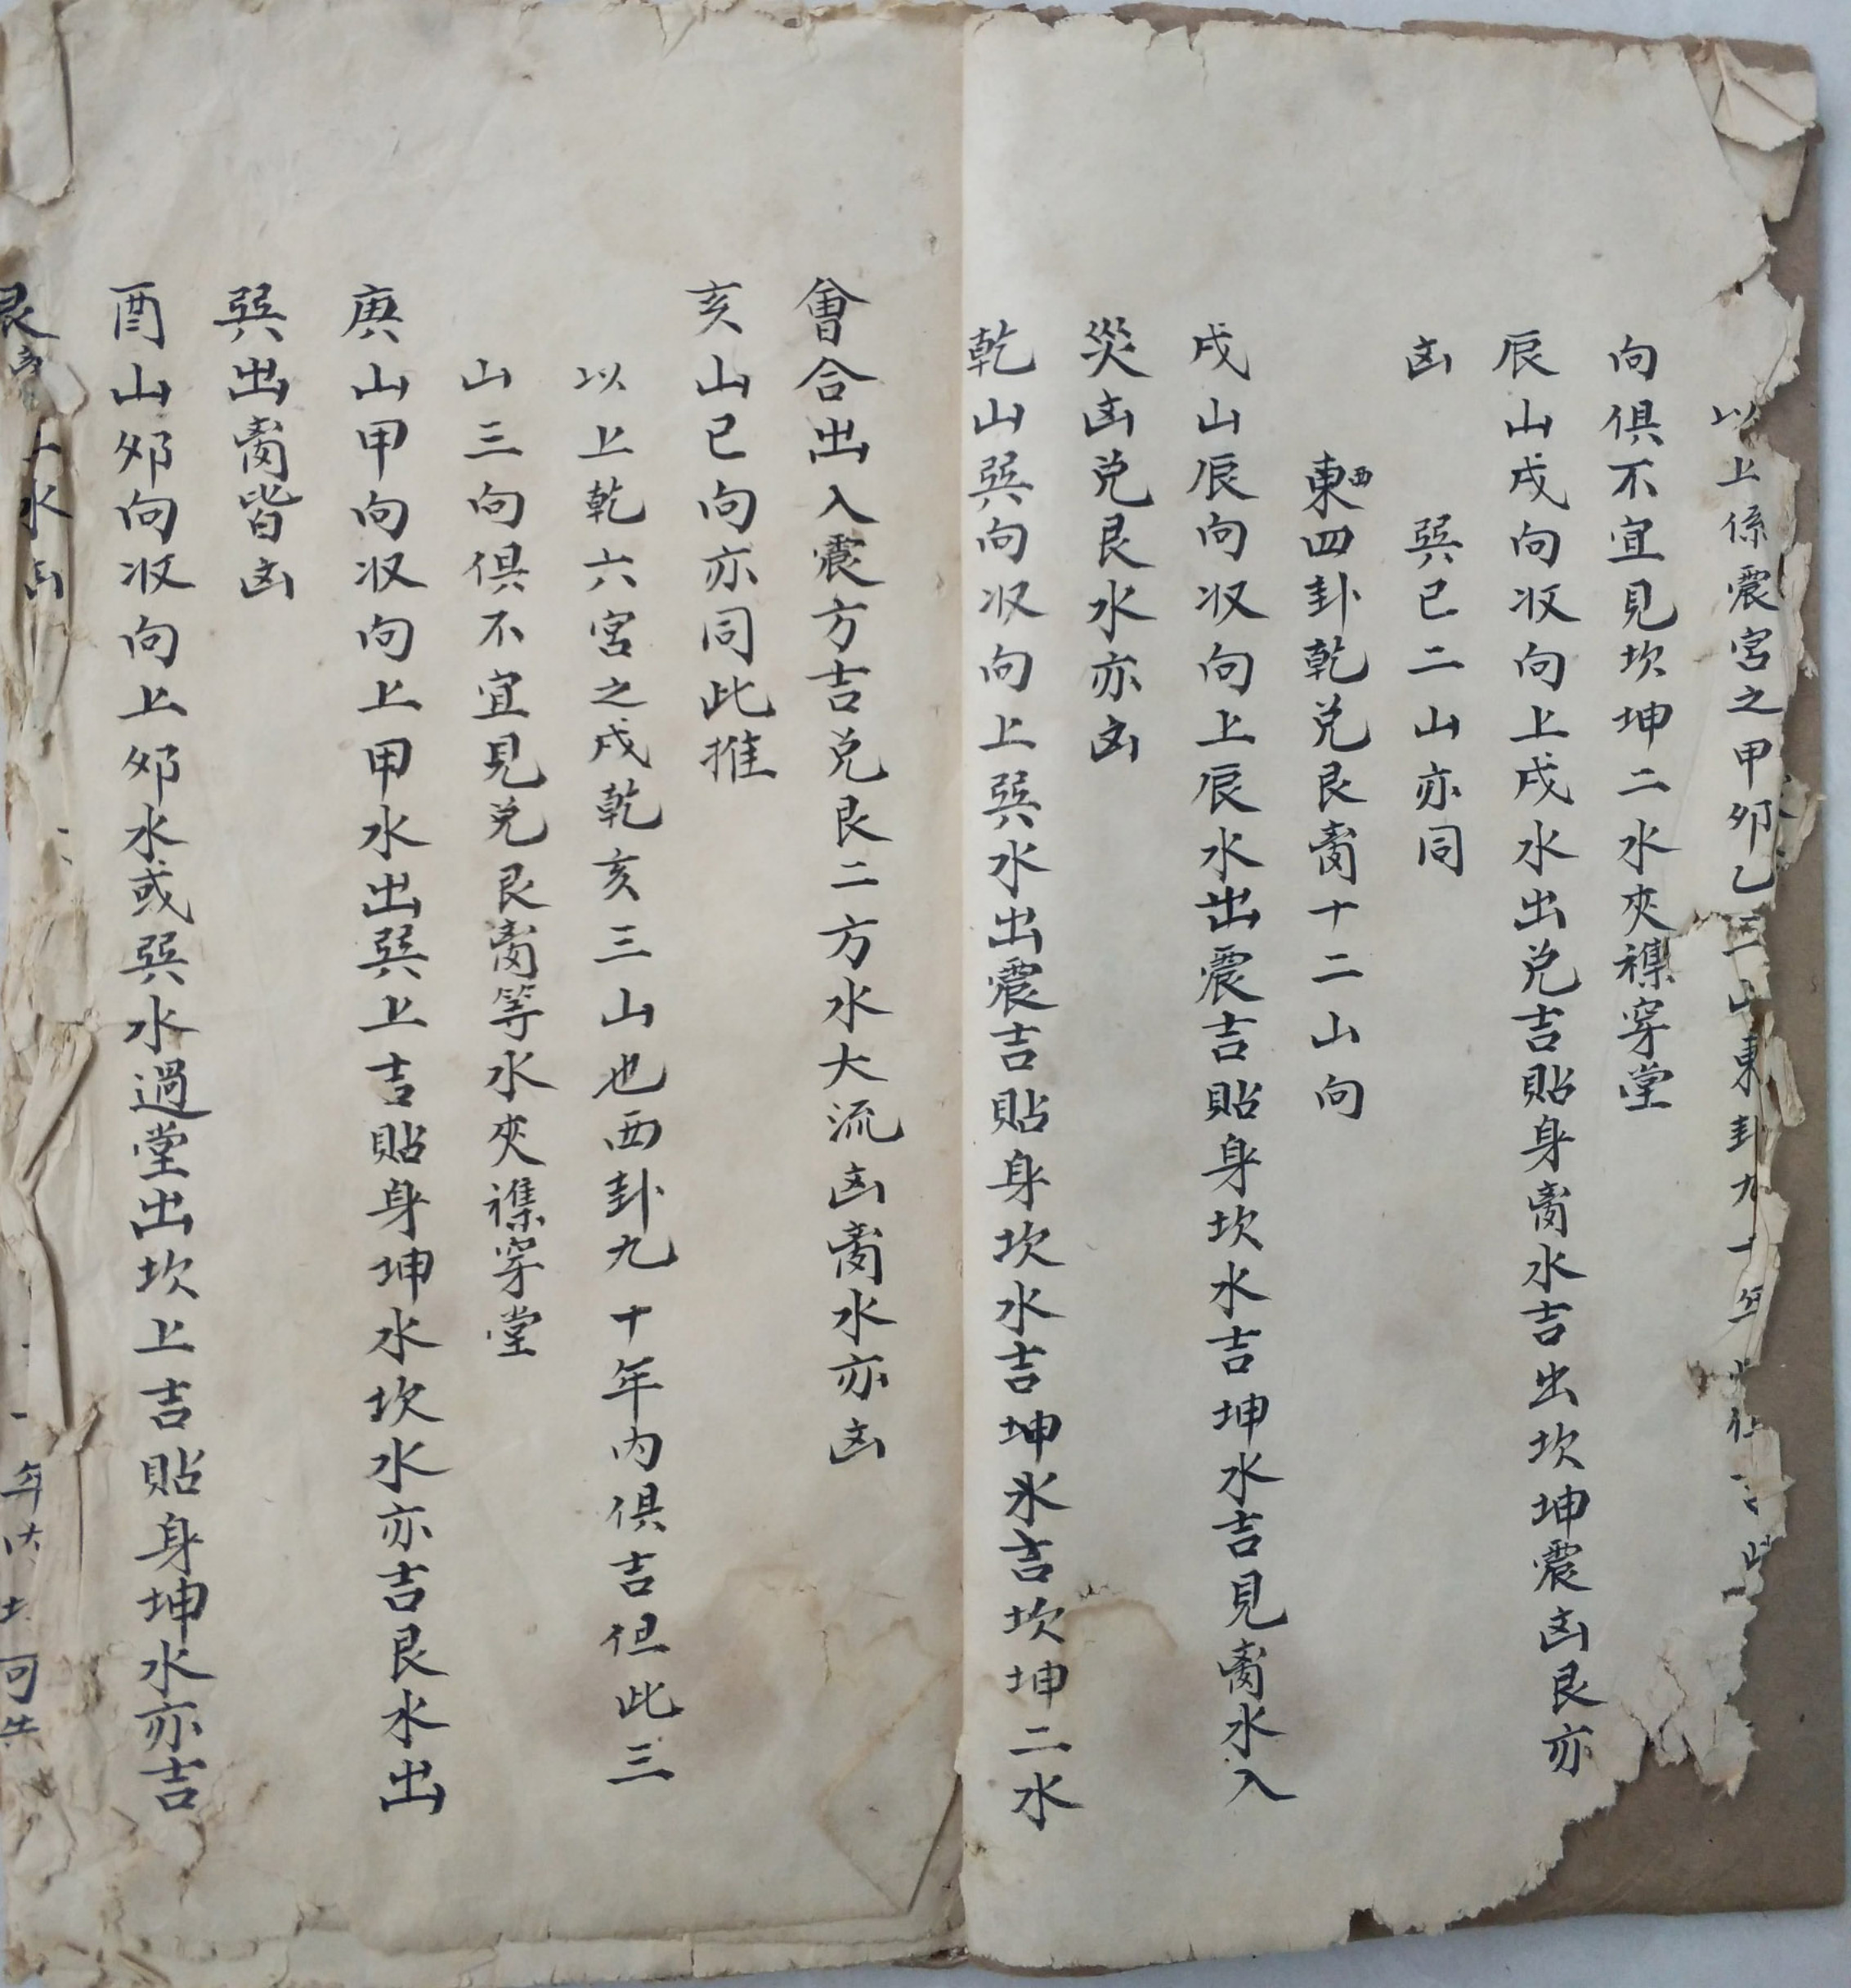 以上係震宮之甲夘乙三山東卦九十年
向俱不宜見坎坤二水夾襍穿堂
辰山戌向収向上戌水出兌吉貼身离水吉出坎坤震凶艮亦
凶　　巽巳二山亦同
東西四卦乾兌艮离十二山向
戌山辰向収向上辰水出震吉貼身坎水吉坤水吉見离水入
災凶兌艮水亦凶
乾山巽向収向上巽水出震吉貼身坎水吉坤水吉坎坤二水
會合出入震方吉兌艮二方水大流凶离水亦凶
亥山巳向亦同此推
以上乾六宮之戌乾亥三山也西卦九十年內俱吉但此三
山三向俱不宜見兌艮离等水夾襍穿堂
庚山甲向収向上甲水出巽上吉貼身坤水坎水亦吉艮水出
巽出离皆凶
酉山夘向収向上夘水或巽水過堂出坎上吉貼身坤水亦吉
艮
水